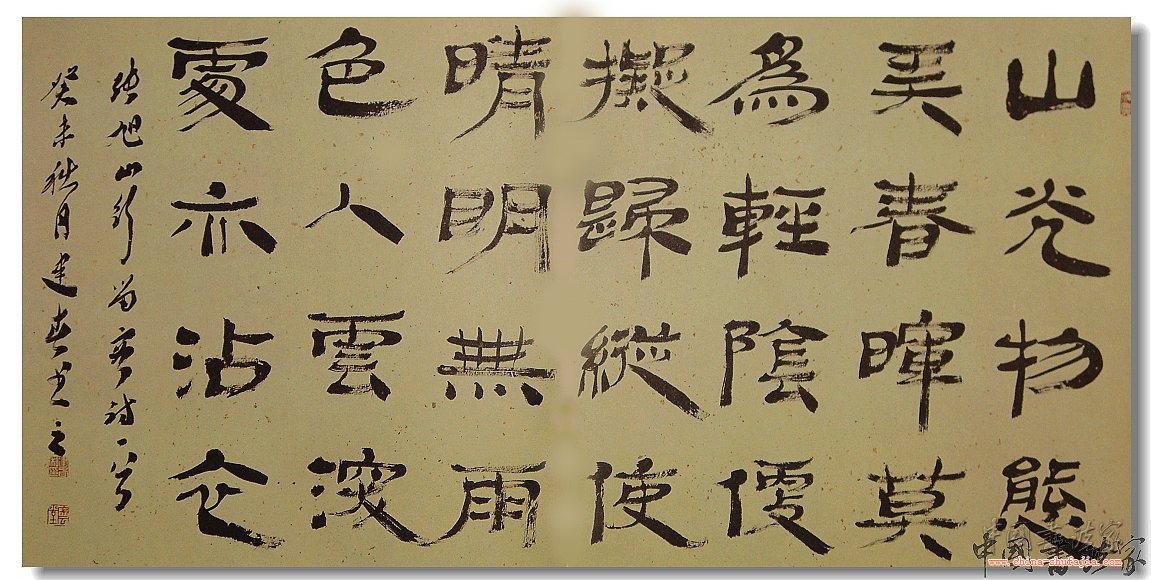 山光物態
弄春暉莫
為輕陰便
擬歸縱使
晴明無雨
色入雲深
處亦沾衣
張旭山行留客詩一首
癸未秋月建春書之
中國書法家
www.china-shufajia.com